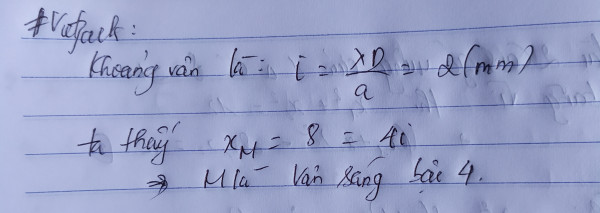 #Vufack:
Khoảng vân là: i = λD/a = 2(mm)
ta thấy x_M = 8 = 4i
⇒ M là vân sáng bậc 4.